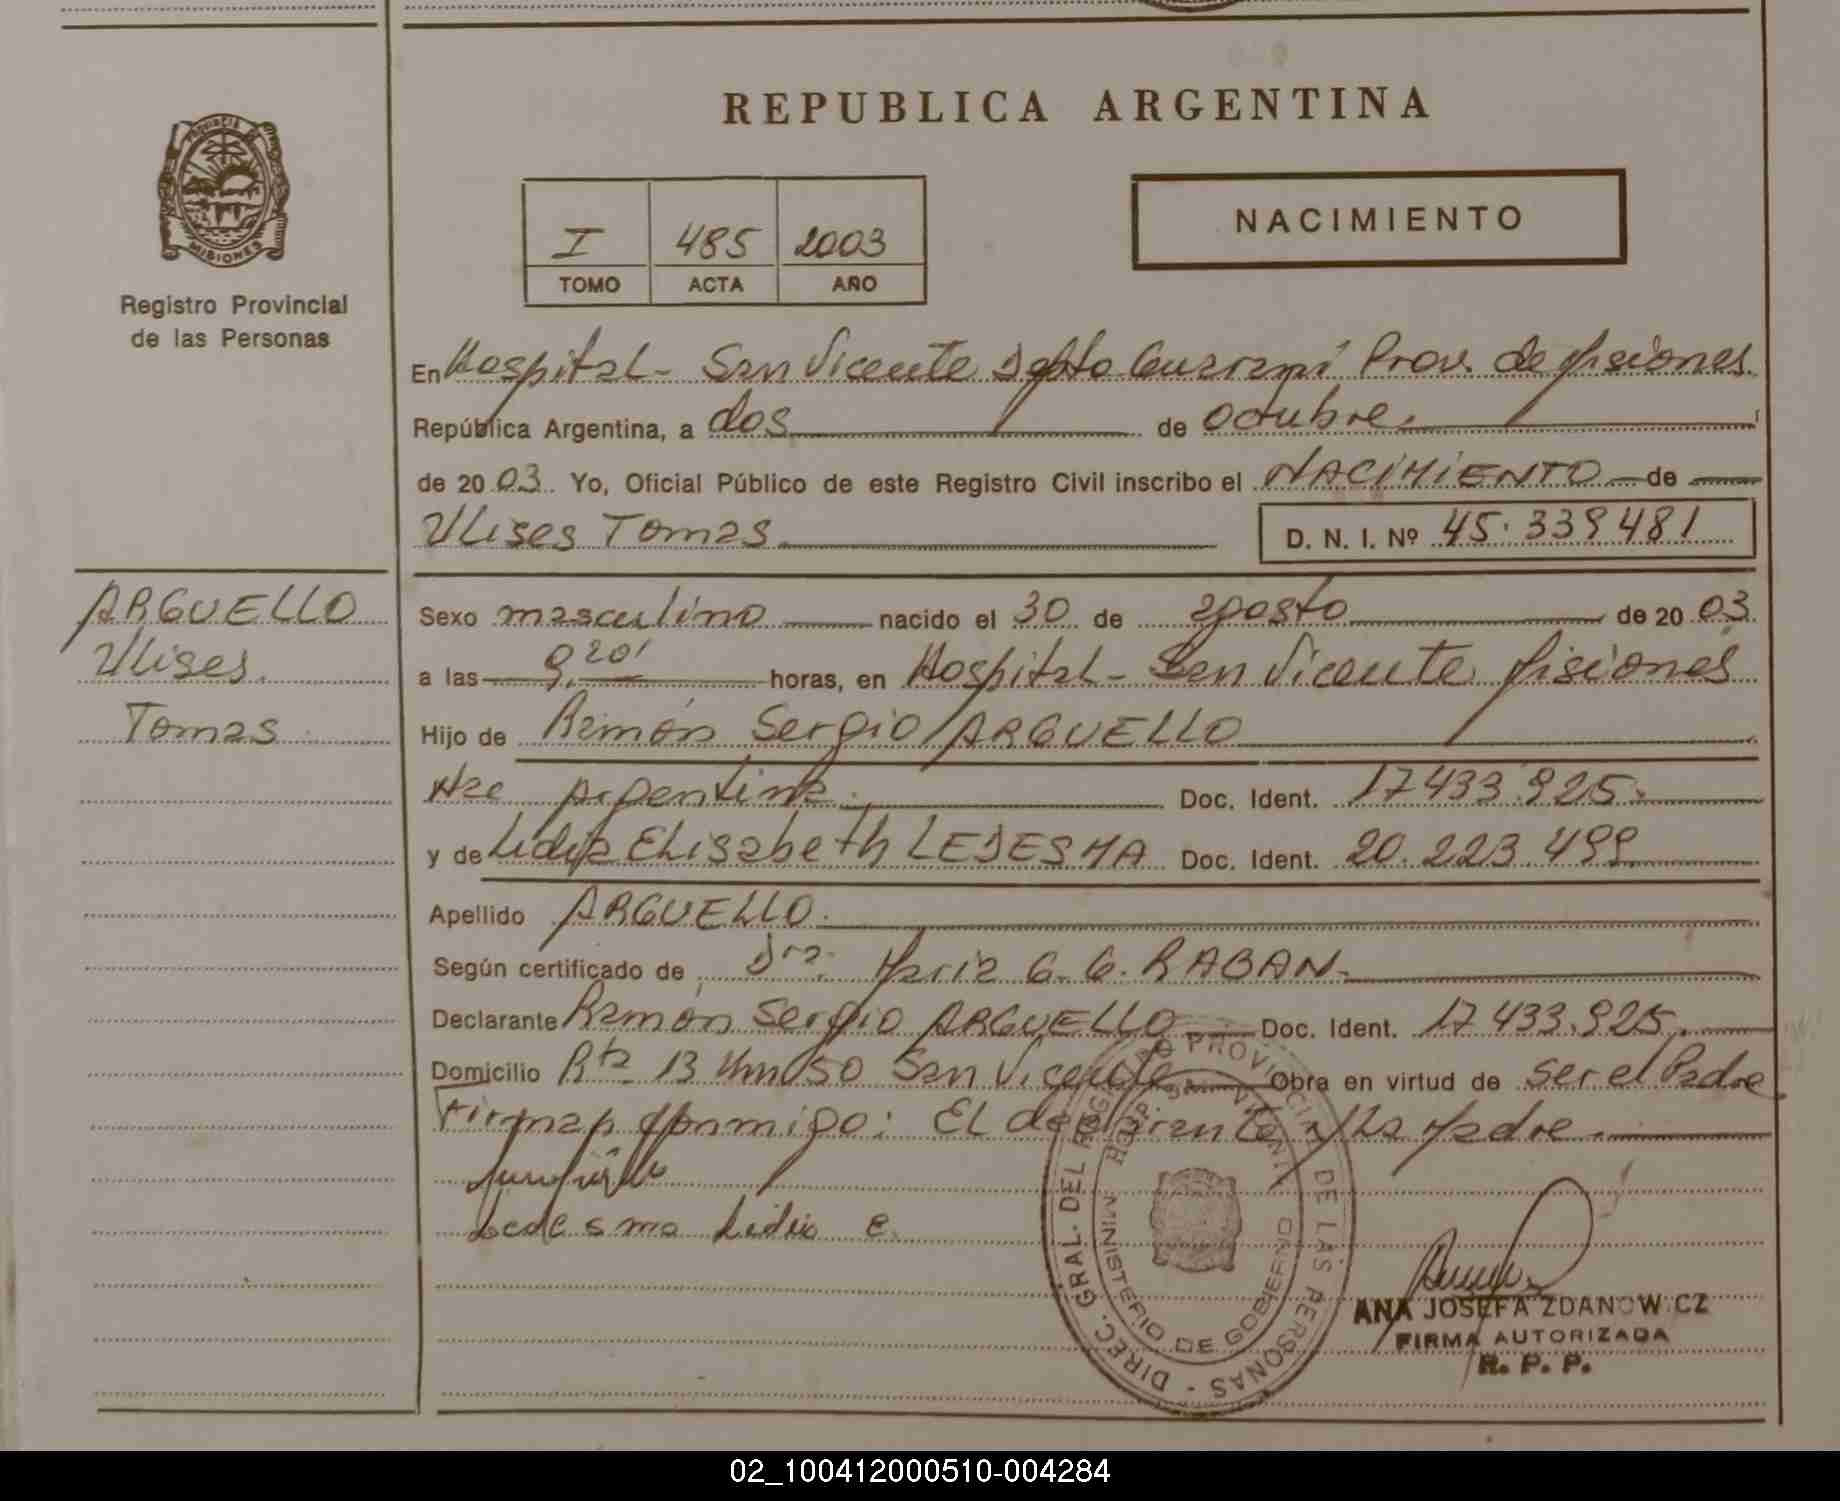 REPUBLICA ARGENTINA
PROVINCIA DE MISIONES
Registro Provincial
de las Personas
I 485 2003
TOMO ACTA AÑO
NACIMIENTO
En Hospital - San Vicente Depto Guaraní Prov. de Misiones
República Argentina, a dos de octubre.
de 2003. Yo, Oficial Público de este Registro Civil inscribo el NACIMIENTO de
Ulises Tomas D. N. I. Nº 45.339481
ARGUELLO
Ulises
Tomas
Sexo masculino nacido el 30 de agosto de 2003
a las 9,20' horas, en Hospital - San Vicente Misiones
Hijo de Ramón Sergio ARGUELLO
Nac Argentina. Doc. Ident. 17433.925.
y de Lidia Elisabeth LEDESMA Doc. Ident. 20.223.499
Apellido ARGUELLO.
Según certificado de Dra. Maria G. G. RABAN.
Declarante Ramón Sergio ARGUELLO Doc. Ident. 17433.925.
Domicilio Rta 13 Km 50 San Vicente Obra en virtud de ser el Padre
Firman conmigo: El declarante y la Madre.
Ledesma Lidia E.
DIREC. GRAL. DEL REGISTRO PROVINCIAL DE LAS PERSONAS -
HOSP. SAN VICENTE
MINISTERIO DE GOBIERNO
ANA JOSEFA ZDANOWICZ
FIRMA AUTORIZADA
R. P. P.
02_100412000510-004284